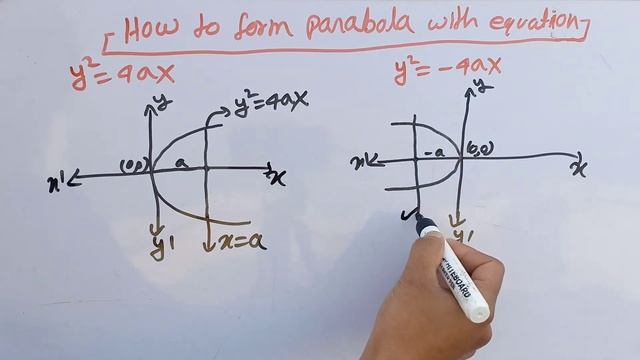 How to form parabola with equation
y² = 4ax
y² = -4ax
y
y² = 4ax
(0,0)
a
x'
x
y'
x = a
y
-a
(0,0)
x'
x
y'
WHITEBOARD